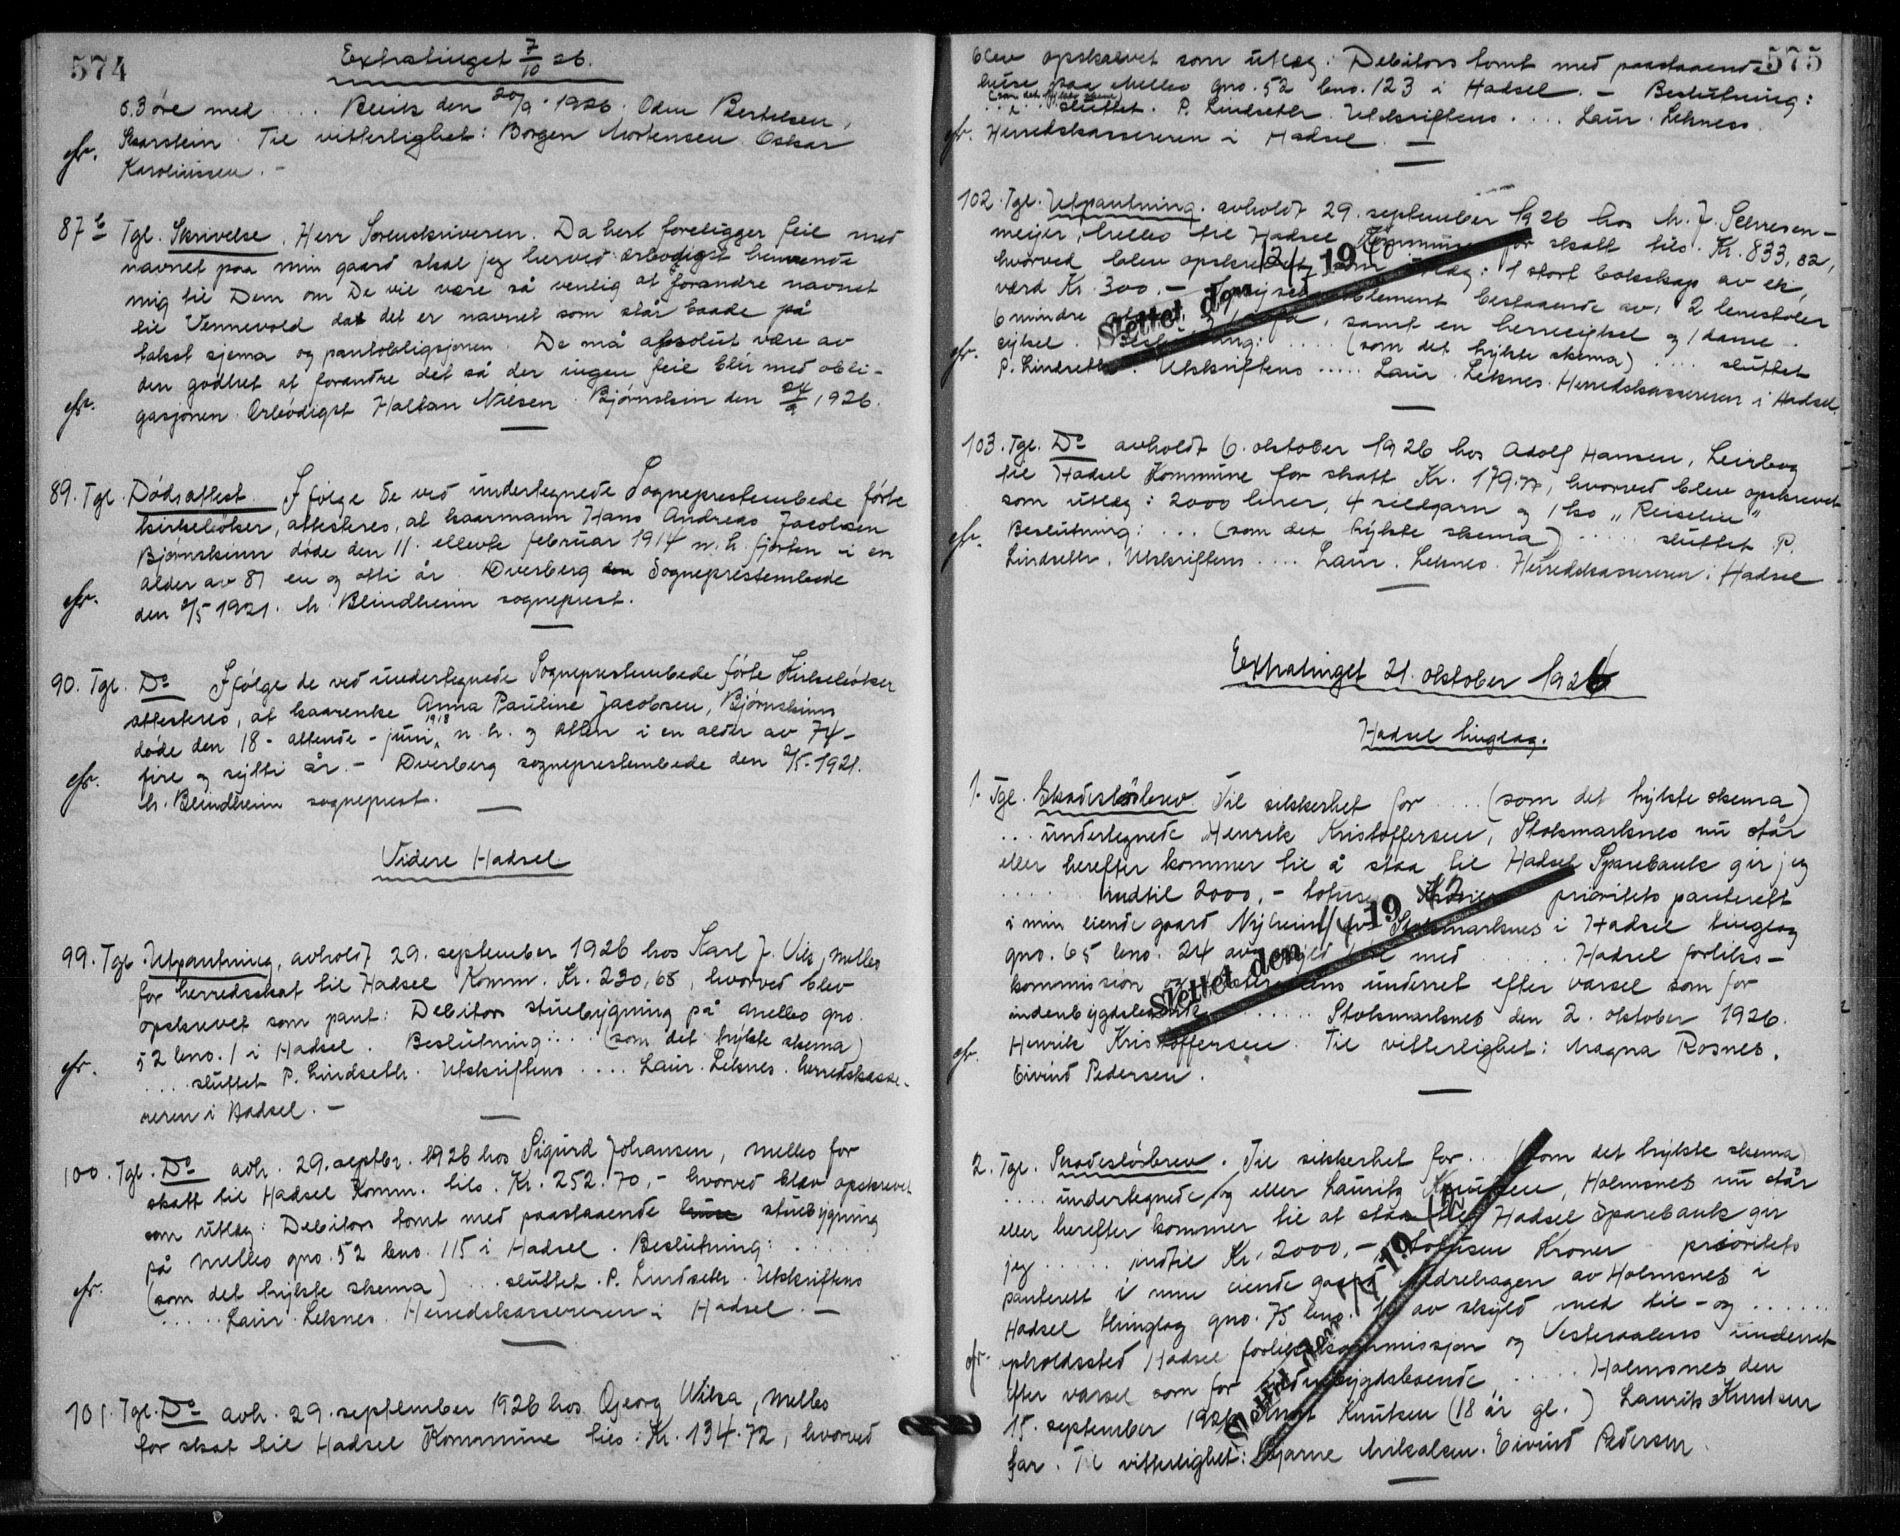 574
Extratinget 7/10 26.
63 øre med .... Bleik den 20/9 1926. Odin Bertelsen,
Skarstein. Til vitterlighet: Borgen Mortensen Oskar
Karoliussen. -
87 b Tgl. Skrivelse. Herr Sorenskriveren. Da her foreligger feil med
navnet paa min gaard skal jeg herved ærbødigst henvende
mig til Dem om De vil være så venlig at forandre navnet
til Vennevold da det er navnet som står baade på
takst sjema og pantobligasjonen. De må absolut være av
den godhet at forandre det så der ingen feil blir med obli-
gasjonen. Ærbødigst Halfan Nilsen. Bjørnskin den 24/9 1926.
89. Tgl. Dødsattest. Ifølge de ved undertegnede Sogneprestembede førte
kirkebøker, attesteres, at kaarmann Hans Andreas Jacobsen
Bjørnskinn døde den 11. ellevte februar 1914 n. h. fjorten i en
alder av 81 en og otti år. Dverberg sogneprestembede
den 2/5 1921. M. Blindheim sogneprest.
90. Tgl. Do Ifølge de ved undertegnede Sogneprestembede førte Kirkebøker
attesteres, at kaarenke Anna Pauline Jacobsen, Bjørnskinn
døde den 18 - attende - juni 1918 n. h. og atten i en alder av 74 -
fire og sytti år. - Dverberg sogneprestembede den 2/5 1921.
M. Blindheim sogneprest.
Videre Hadsel.
99. Tgl. Utpantning, avholdt 29. september 1926 hos Karl J. Vik, Melbo
for herredsskat til Hadsel Komm. Kr. 230,68, hvorved blev
opskrevet som pant: Debitors stuebygning på Melbo gno.
52 bno. 1 i Hadsel. Beslutning: .... (som det trykte skema)
.... sluttet P. Lindseth. Utskriftens .... Laur. Leknes. herredskasse-
reren i Hadsel. -
100. Tgl. Do avh. 29. septbr. 1926 hos Sigurd Johansen, Melbo for
skatt til Hadsel Komm. tils. Kr. 252.70,- hvorved blev opskrevet
som utlæg: Debitors tomt med paastaaende huse stuebygning
på Melbo gno. 52 bno. 115 i Hadsel. Beslutning: .....
(som det trykte skema) ... sluttet. P. Lindseth. Utskriftens
..... Laur. Leknes. Herredskassereren i Hadsel. -
101. Tgl. Do avh. 29. september 1926 hos Georg Wika, Melbo
for skat til Hadsel Kommune tils: Kr. 134.72, hvorved
575
blev opskrevet som utlæg: Debitors tomt med paastaaende
huse paa Melbo gno. 52 bno. 123 i Hadsel. - Beslutning:
(som det trykte skema)
.... sluttet. P. Lindseth. Utskriftens .... Laur. Leknes.
Herredskassereren i Hadsel. -
102. Tgl. Utpantning. avholdt 29. september 1926 hos M. J.
meijer, Melbo til Hadsel Kommune for skatt tils. Kr. 833,82,
hvorved blev opskrevet som utlæg: 1 stort bokskap av ek,
værd Kr. 300.- bestaaende av: 2 lenestoler
6 mindre samt en herresykel og 1 dame-
sykel. Beslutning: .... (som det trykte skema) .... sluttet
P. Lindseth. Utskriftens ..... Laur. Leknes. Herredskassereren i Hadsel.
Slettet den 19
103. Tgl. Do avholdt 6. oktober 1926 hos Adolf Hansen, Leirbog
til Hadsel Kommune for skatt Kr. 179.77, hvorved blev opskrevet
som utlæg: 2000 liner, 4 sildgarn og 1 ko "Reiselin"
Beslutning: ... (som det trykte skema) ..... sluttet P.
Lindseth. Utskriftens .... Laur. Leknes. Herredskassereren i Hadsel
Extratinget 21. oktober 1926
Hadsel tinglag.
1. Tgl. Skadesløsbrev. Til sikkerhet for .... (som det trykte skema)
... undertegnede Henrik Kristoffersen, Stokmarknes nu står
eller herefter kommer til å staa til Hadsel Sparebank gir jeg
..... indtil 2000,- totusen Kroner prioritets panterett
i min eiende gaard Nyheim av Stokmarknes i Hadsel tinglag
gno. 65 bno. 24 av skyld med ..... Hadsel forliks-
kommission og Vesteraalens underret efter varsel som for
indenbygdsboende ...... Stokmarknes den 2. oktober 1926.
Henrik Kristoffersen. Til vitterlighet: Magna Rosnes.
Eivind Pedersen.
Slettet den 19
2. Tgl. Skadesløsbrev. Til sikkerhet for ... (som det trykte skema)
.... undertegnede og eller Lauritz Knutsen, Holmsnes nu står
eller herefter kommer til at staa til Hadsel Sparebank gir
jeg ..... indtil Kr. 2000,- totusen Kroner prioritets
panterett i min eiende gaard Nedrehagen av Holmsnes i
Hadsel tinglag gno. 75 bno. av skyld med til - og ......
opholdssted Hadsel forlikskommission og Vesteraalens underret
efter varsel som for indenbygdsboende ..... Holmsnes den
15. september 1926. Knut Knutsen (18 år gl.) Laurits Knutsen
far. Til vitterlighet: Bjarne Mikalsen. Eivind Pedersen.
Slettet den 19